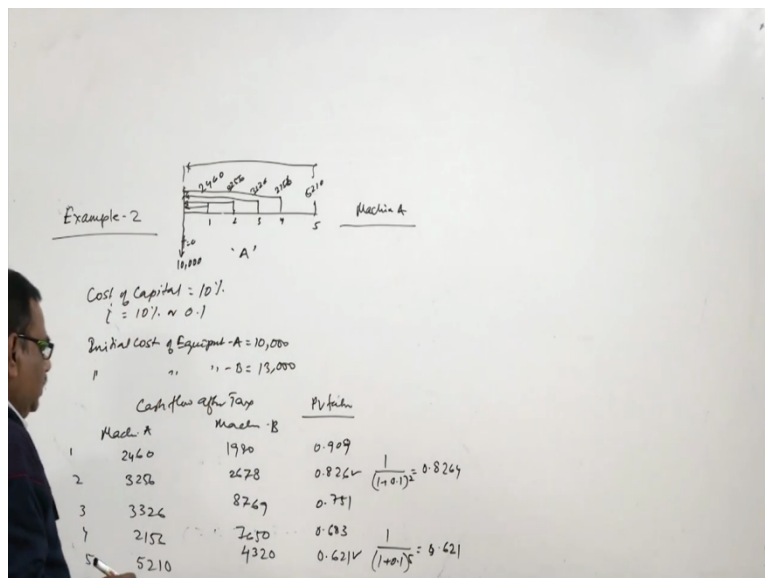 2460 3256 3326 2156 5210
Example-2
Machin A
1 2 3 4 5
10,000
'A'
Cost of Capital = 10%.
i = 10% ~ 0.1
Initial Cost of Equipmt - A = 10,000
" " " - B = 13,000
Cash flow after Tax PV factor
Machi. A Machi. B
1 2460 1980 0.909
2 3256 2678 0.826✓ 1/(1+0.1)² = 0.8264
3 3326 8769 0.751
4 2156 3650 0.683
5 5210 4320 0.621✓ 1/(1+0.1)⁵ = 0.621